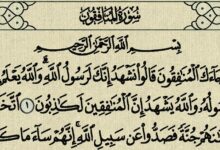 سُورَةُ المُنَافِقُونَ
بِسْمِ ٱللَّهِ ٱلرَّحْمَٰنِ ٱلرَّحِيمِ
جَآءَكَ ٱلْمُنَٰفِقُونَ قَالُوا۟ نَشْهَدُ إِنَّكَ لَرَسُولُ ٱللَّهِ ۗ وَٱللَّهُ يَعْلَمُ
سُولُهُۥ وَٱللَّهُ يَشْهَدُ إِنَّ ٱلْمُنَٰفِقِينَ لَكَٰذِبُونَ ١ ٱتَّخَ
نَهُمْ جُنَّةً فَصَدُّوا۟ عَن سَبِيلِ ٱللَّهِ ۚ إِنَّهُمْ سَآءَ مَا كَ